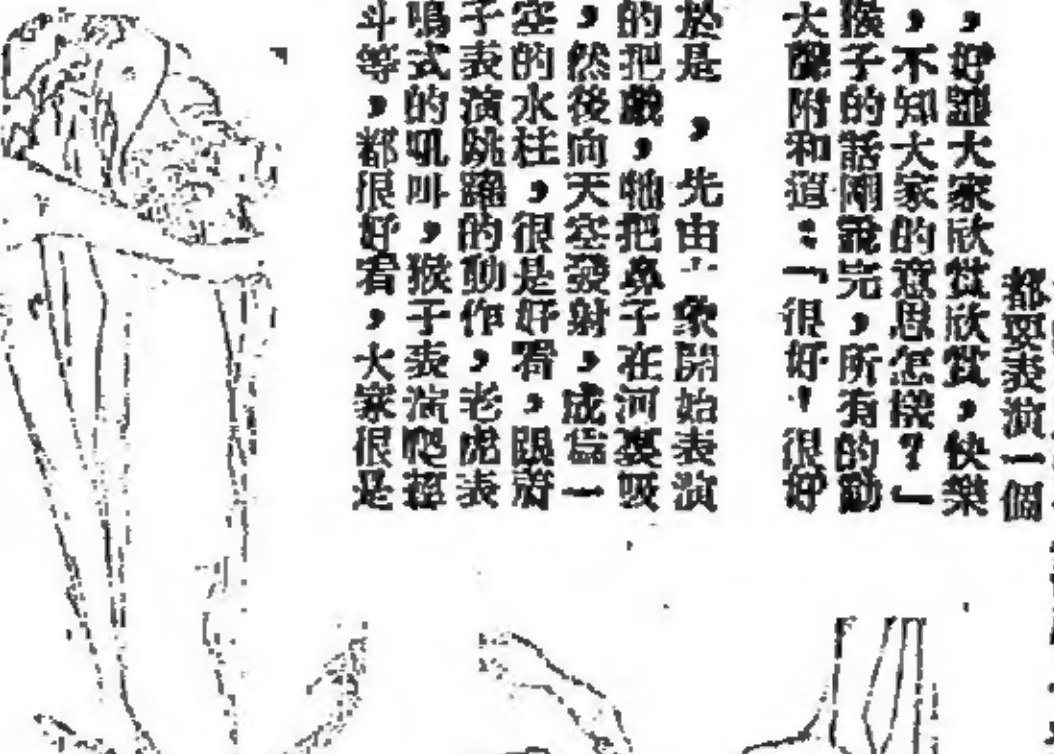 都要表演一個
，好讓大家欣賞欣賞，快樂
，不知大家的意思怎樣？」
猴子的話剛說完，所有的動
大聲附和道：「很好！很好
於是，先由大象開始表演
的把戲，牠把鼻子在河裏吸
，然後向天空發射，成為一
空的水柱，很是好看，跟着
子表演跳躍的動作，老虎表
鳴式的吼叫，猴子表演爬
斗等，都很好看，大家很是